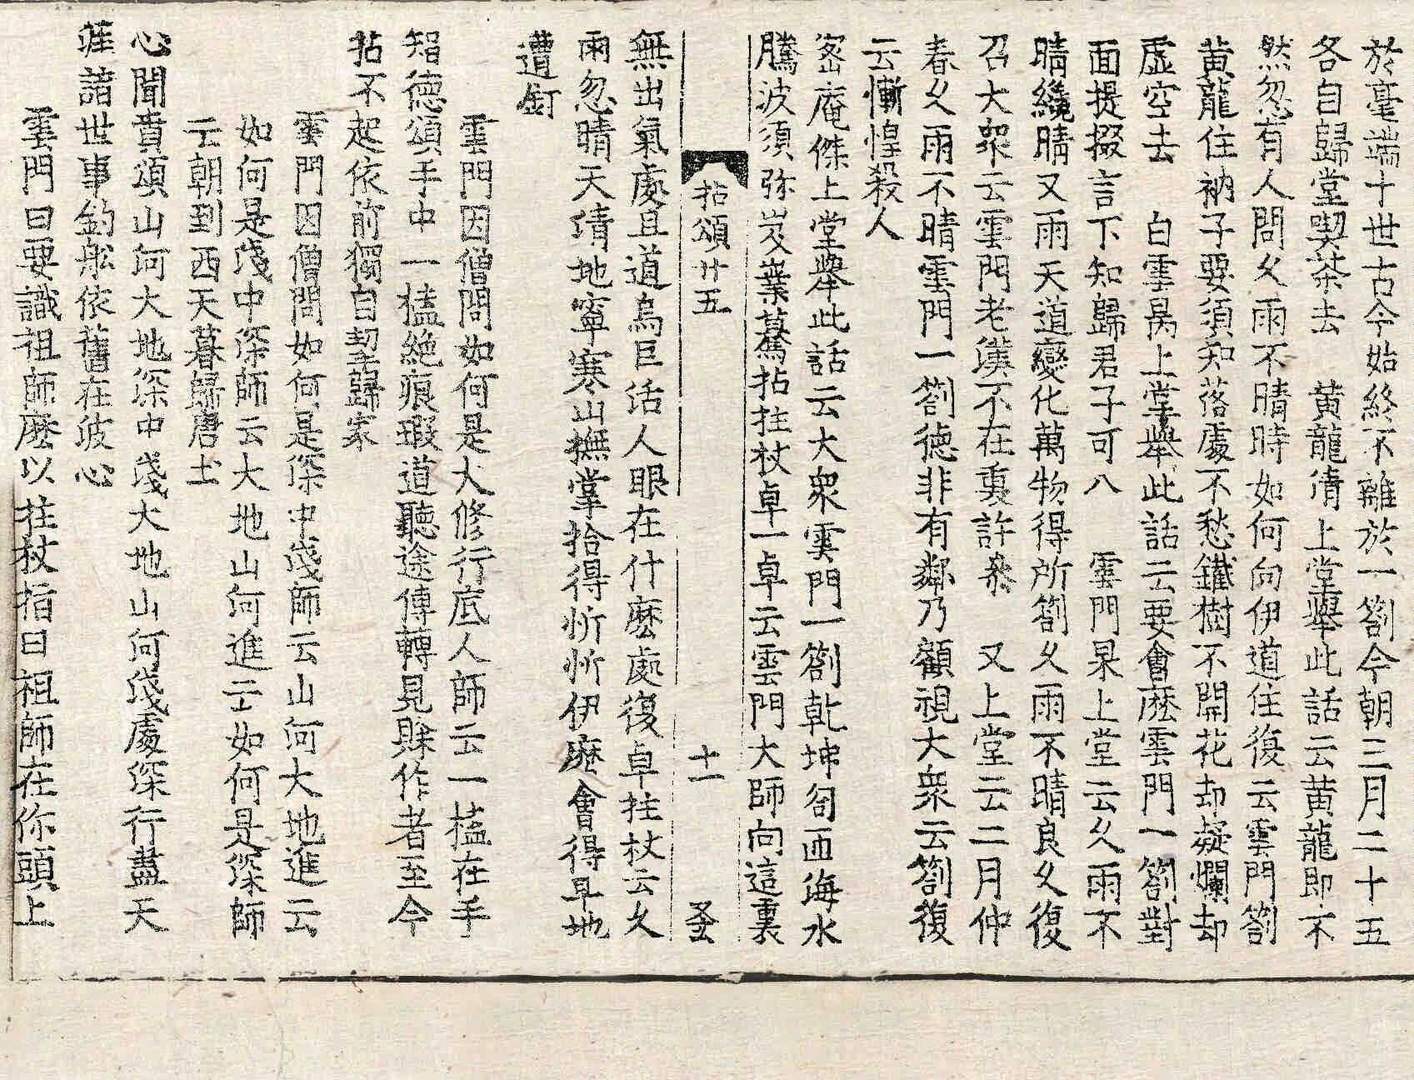 於毫端十世古今始終不離於一劄今朝三月二十五
各自歸堂喫茶去　黄龍清上堂舉此話云黄龍即不
然忽有人問久雨不晴時如何向伊道住復云雲門劄
黄龍住衲子要須知落處不愁鐵樹不開花却凝爛却
虚空去　白雲昺上堂舉此話云要會麽雲門一劄對
面提掇言下知歸君子可八　雲門杲上堂云久雨不
晴纔晴又雨天道變化萬物得所劄久雨不晴良久復
召大衆云雲門老漢不在裏許叅　又上堂云二月仲
春久雨不晴雲門一劄德非有鄰乃顧視大衆云劄復
云慚惶殺人
密庵傑上堂舉此話云大衆雲門一劄乾坤匌匝海水
騰波須弥岌業驀拈拄杖卓一卓云雲門大師向這裏
拈頌廿五　十一
無出氣處且道烏巨活人眼在什麽處復卓拄杖云久
雨忽晴天清地寧寒山撫掌拾得忻忻伊麽會得旱地
遭釘
雲門因僧問如何是大修行底人師云一榼在手
智德頌手中一榼絶痕瑕道聽途傳轉見賒作者至今
拈不起依前獨自掣歸家
雲門因僧問如何是深中淺師云山河大地進云
如何是淺中深師云大地山河進云如何是深師
云朝到西天暮歸唐土
心聞賁頌山河大地深中淺大地山河淺處深行盡天
涯諳世事釣船依舊在波心
雲門曰要識祖師麽以拄杖指曰祖師在你頭上